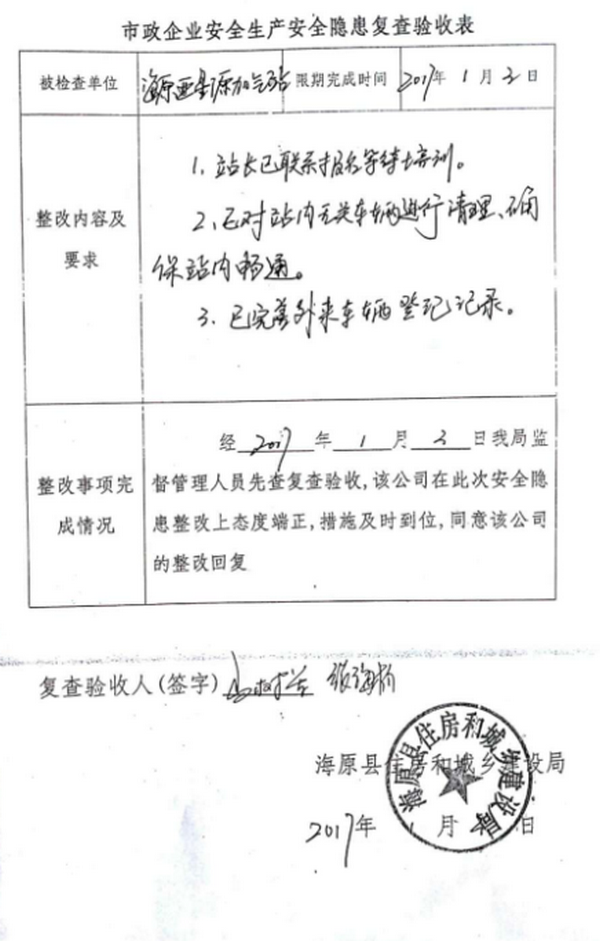 市政企业安全生产安全隐患复查验收表
被检查单位 海原亚星原加气站 限期完成时间 2017年1月2日
1、站长已联系报名等待培训。
整改内容及
要求
2、已对站内无关车辆进行清理、确
保站内畅通。
3、已完善外来车辆登记记录。
整改事项完
成情况
经2017年1月2日我局监
督管理人员先查复查验收,该公司在此次安全隐
患整改上态度端正,措施及时到位,同意该公司
的整改回复
复查验收人(签字) 张海桥
海原县住房和城乡建设局
海原县住房和城乡建设局
2017年 月 日